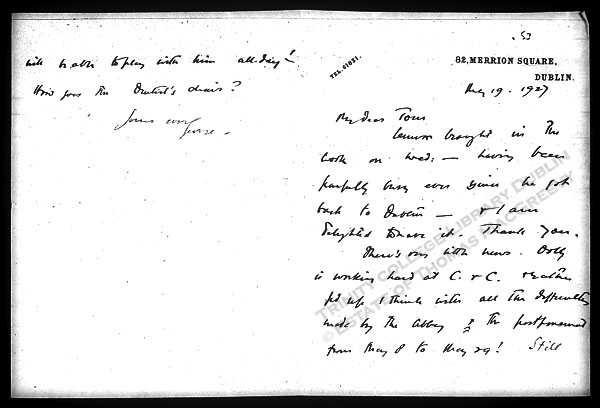 53
TEL. 61051.
82, MERRION SQUARE,
DUBLIN.
May 19. 1927
My dear Tom
Lennox brought in the
book on Wed: — having been
painfully busy ever since he got
back to Dublin — & I am
delighted to have it. Thank you.
There's very little news. Dolly
is working hard at C. & C. & rather
fed up I think with all the difficulties
made by the Abbey & the postponement
from May 8 to May 29! Still
will be able to play with him all day!
How goes the Dentist's chair?
Yours ever
George.
TRINITY COLLEGE LIBRARY DUBLIN
© ESTATE OF THOMAS MACGREEVY